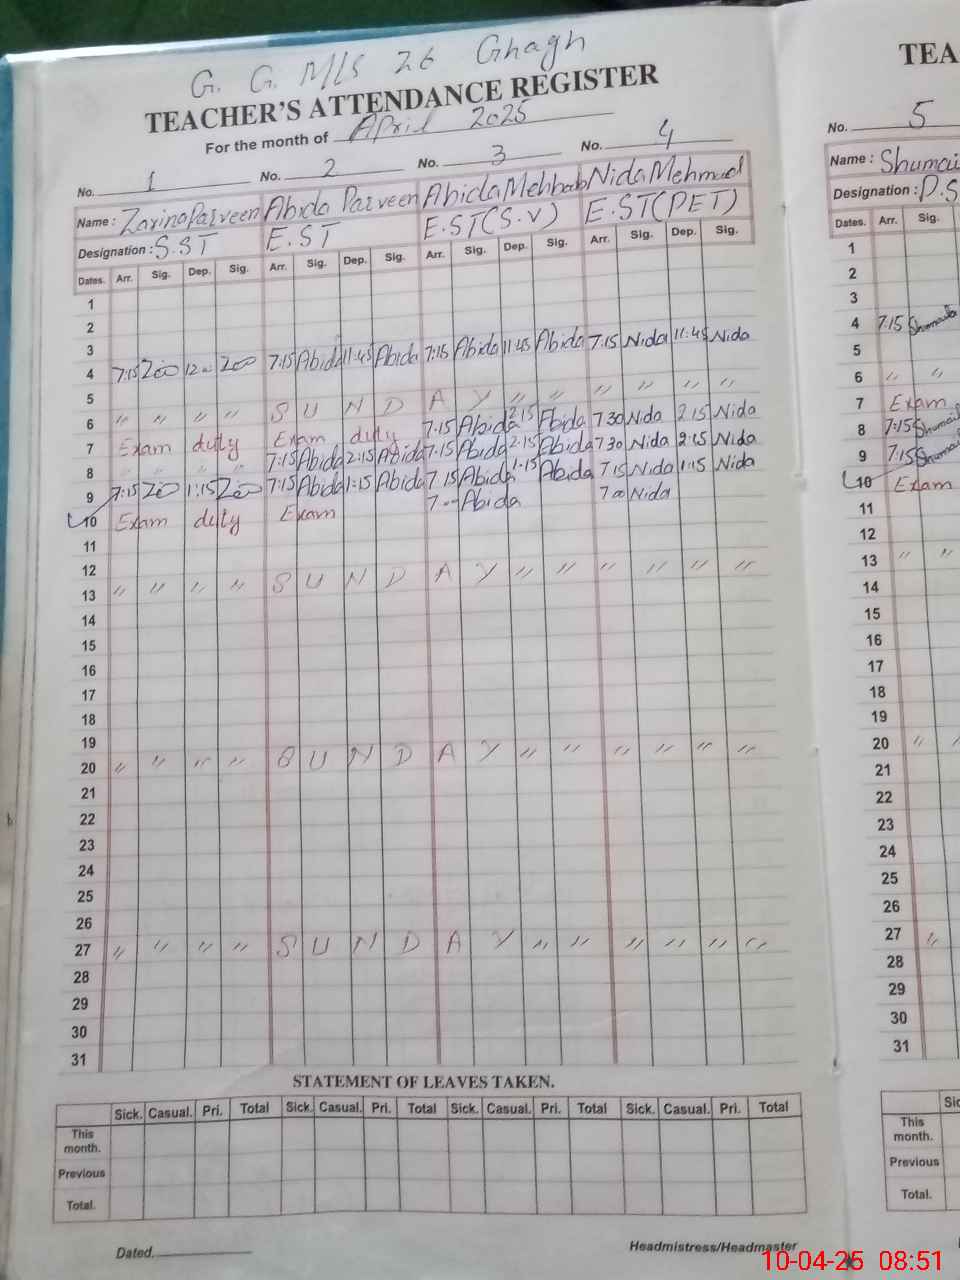 G. G. M/S 26 Ghagh
TEACHER'S ATTENDANCE REGISTER
For the month of April 2025
No. 1 No. 2 No. 3 No. 4
Name : Zarina Parveen Abida Parveen Abida Mehbob Nida Mehmud
Designation : S.ST E.ST E.ST(S.V) E.ST(PET)
Dates. Arr. Sig. Dep. Sig. Arr. Sig. Dep. Sig. Arr. Sig. Dep. Sig. Arr. Sig. Dep. Sig.
1
2
3
4 7:15 12:00 7:15 Abida 11:45 Abida 7:15 Abida 11:45 Abida 7:15 Nida 11:45 Nida
5
6 " " " " S U N D A Y " " " " " "
7 Exam duty Exam duty 7:15 Abida 2:15 Abida 7 30 Nida 2:15 Nida
8 " " " " 7:15 Abida 2:15 Abida 7:15 Abida 2:15 Abida 7 30 Nida 2:15 Nida
9 7:15 1:15 7:15 Abida 1:15 Abida 7 15 Abida 1:15 Abida 7 15 Nida 1:15 Nida
10 Exam duty Exam 7 00 Abida 7 00 Nida
11
12
13 " " " " S U N D A Y " " " " " "
14
15
16
17
18
19
20 " " " " S U N D A Y " " " " " "
21
22
23
24
25
26
27 " " " " S U N D A Y " " " " " "
28
29
30
31
STATEMENT OF LEAVES TAKEN.
Sick. Casual. Pri. Total Sick. Casual. Pri. Total Sick. Casual. Pri. Total Sick. Casual. Pri. Total
This month.
Previous
Total.
Dated.
Headmistress/Headmaster
TEA
No. 5
Name : Shumai
Designation : P.S
Dates. Arr. Sig.
1
2
3
4 7:15 Shumaila
5
6 " "
7 Exam
8 7:15 Shumaila
9 7:15 Shumaila
10 Exam
11
12
13 " "
14
15
16
17
18
19
20 "
21
22
23
24
25
26
27 "
28
29
30
31
Sic
This month.
Previous
Total.
10-04-25 08:51